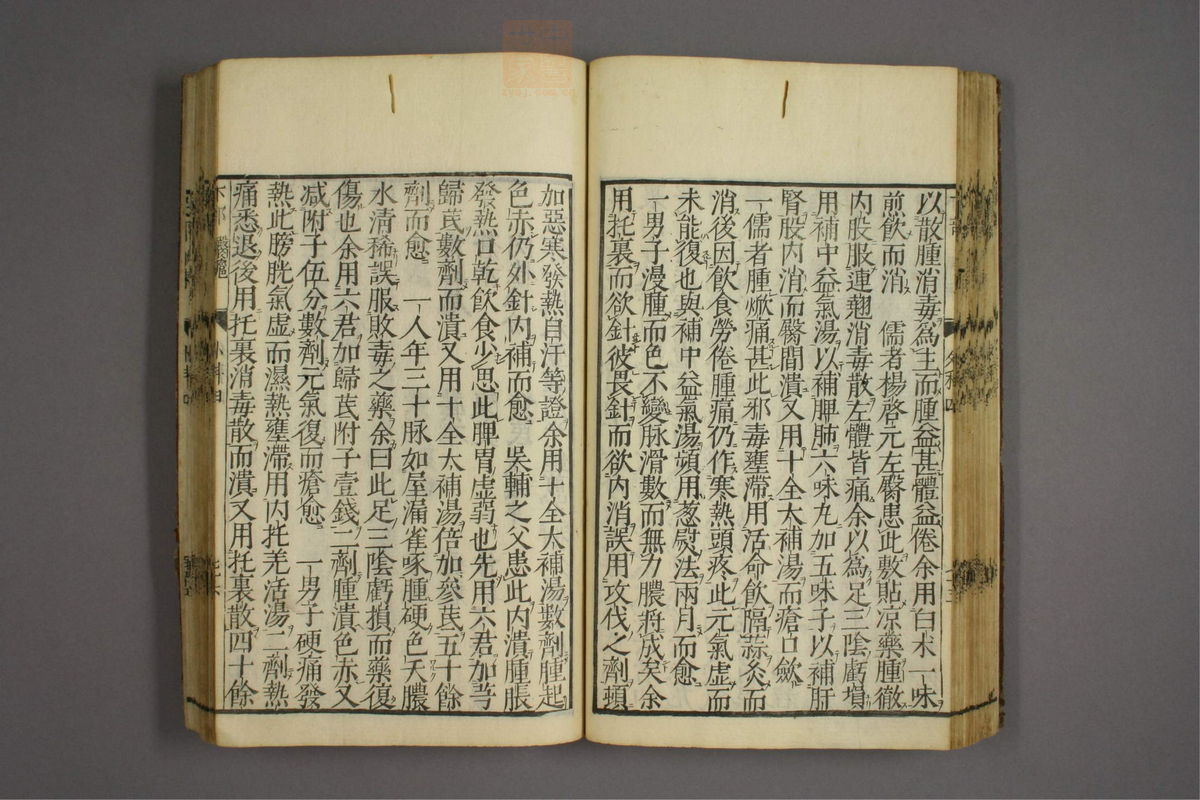 以散腫消毒爲主而腫益甚體益倦余用白朮一味
煎飲而消　儒者楊啓元左臀患此敷貼凉藥腫徹
内股服連翹消毒散左體皆痛余以爲足三陰虧損
用補中益氣湯以補脾肺六味丸加五味子以補肝
腎股内消而臀間潰又用十全大補湯而瘡口歛
一儒者腫焮痛甚此邪毒壅滯用活命飲隔蒜灸而
消後因飲食勞倦腫痛仍作寒熱頭疼此元氣虚而
未能復也與補中益氣湯頻用葱熨法兩月而愈
一男子漫腫而色不變脉滑數而無力膿將成矣余
用托裏而欲針彼畏針而欲内消誤用攻伐之劑頓
加惡寒發熱自汗等證余用十全大補湯數劑腫起
色赤仍外針内補而愈　吳輔之父患此内潰腫脹
發熱口乾飲食少思此脾胃虚弱也先用六君加芎
歸芪數劑而潰又用十全大補湯倍加參芪五十餘
劑而愈　一人年三十脉如屋漏雀啄腫硬色夭膿
水清稀誤服敗毒之藥余曰此足三陰虧損而藥復
傷也余用六君加歸芪附子壹錢二劑腫潰色赤又
减附子伍分數劑元氣復而瘡愈　一男子硬痛發
熱此膀胱氣虚而濕熱壅滯用内托羌活湯二劑熱
痛悉退後用托裏消毒散而潰又用托裏散四十餘